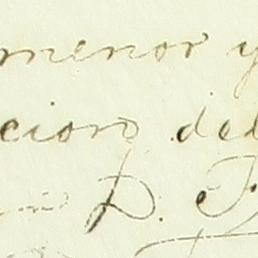 menor y
cion del
D. F